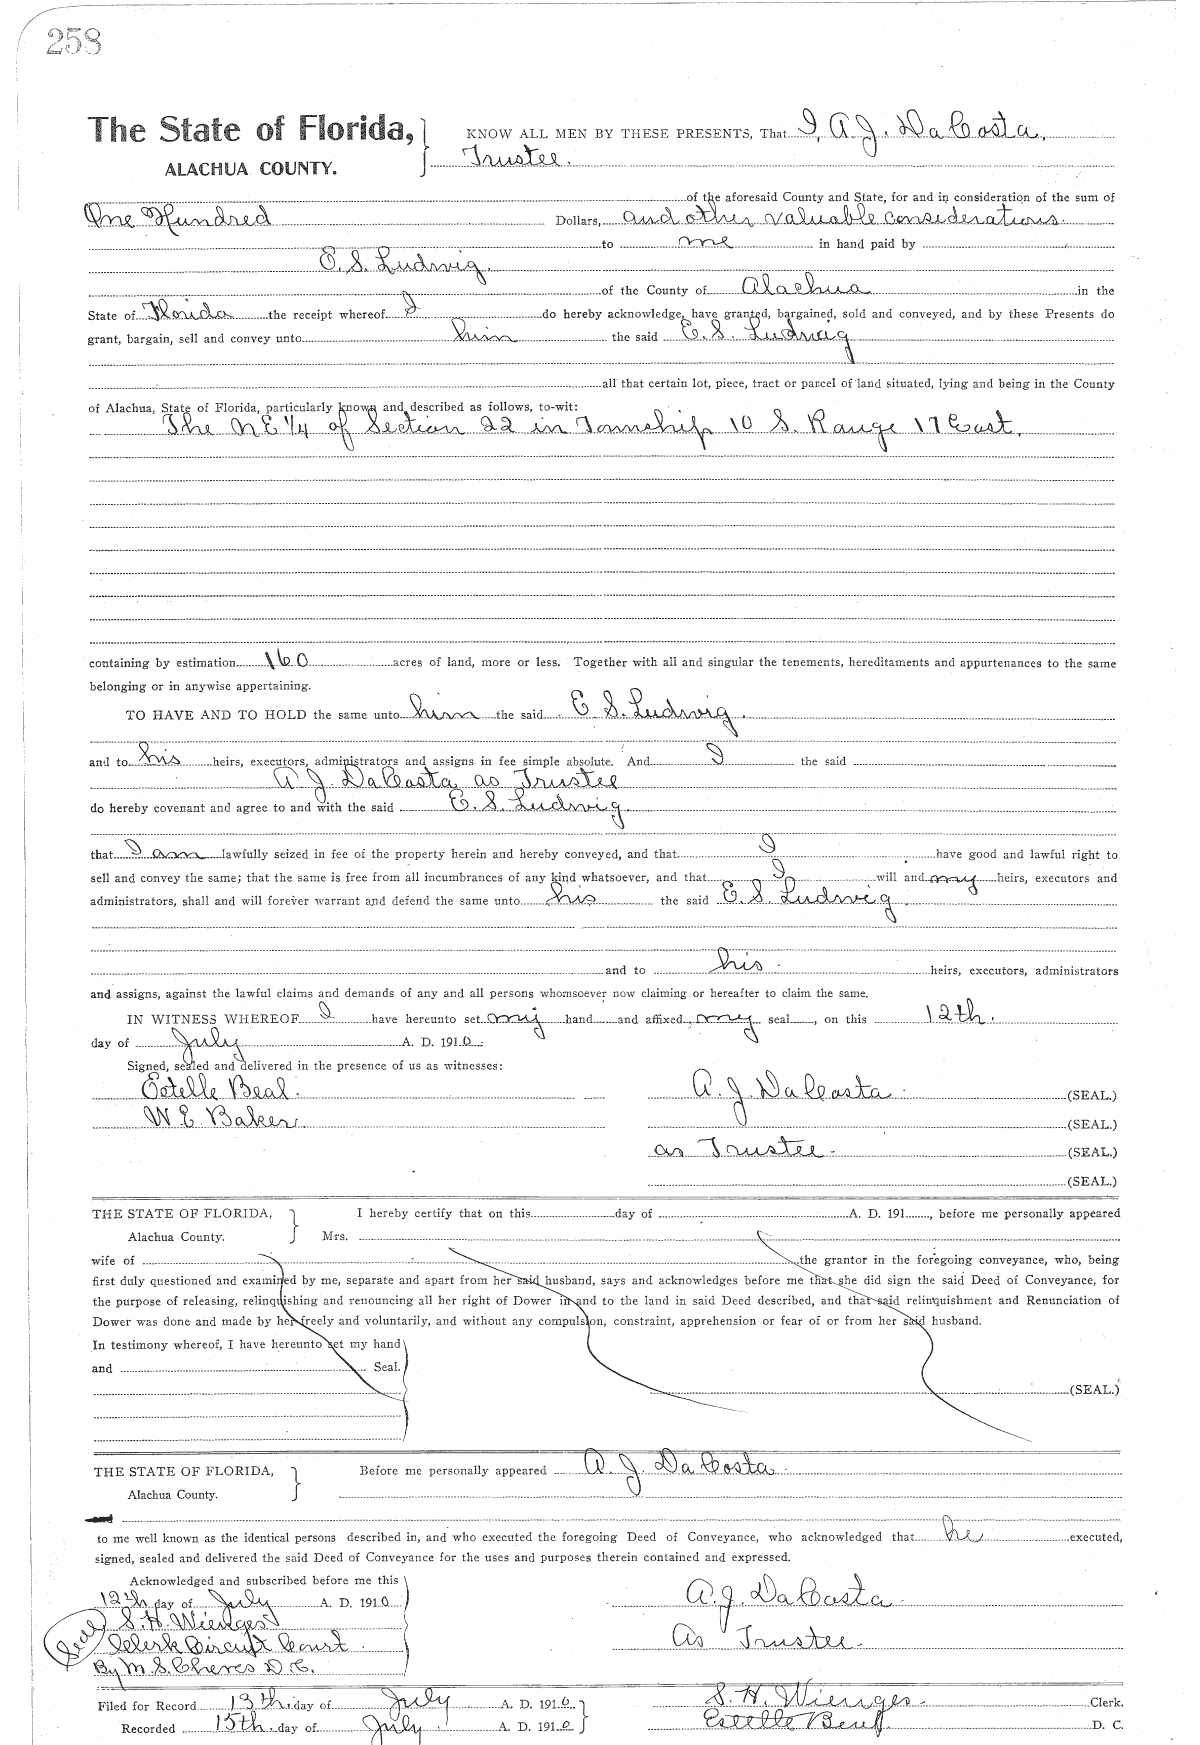 258
The State of Florida,
ALACHUA COUNTY.
KNOW ALL MEN BY THESE PRESENTS, That I, A. J. DaCosta,
Trustee.
of the aforesaid County and State, for and in consideration of the sum of
One Hundred Dollars, and other valuable considerations.
to me in hand paid by
E. S. Ludwig.
of the County of Alachua in the
State of Florida the receipt whereof I do hereby acknowledge, have granted, bargained, sold and conveyed, and by these Presents do
grant, bargain, sell and convey unto him the said E. S. Ludwig
all that certain lot, piece, tract or parcel of land situated, lying and being in the County
of Alachua, State of Florida, particularly known and described as follows, to-wit:
The NE 1/4 of Section 22 in Township 10 S. Range 17 East.
containing by estimation 160 acres of land, more or less. Together with all and singular the tenements, hereditaments and appurtenances to the same
belonging or in anywise appertaining.
TO HAVE AND TO HOLD the same unto him the said E. S. Ludwig.
and to his heirs, executors, administrators and assigns in fee simple absolute. And I the said
A. J. DaCosta as Trustee
do hereby covenant and agree to and with the said E. S. Ludwig.
that I am lawfully seized in fee of the property herein and hereby conveyed, and that I have good and lawful right to
sell and convey the same; that the same is free from all incumbrances of any kind whatsoever, and that I will and my heirs, executors and
administrators, shall and will forever warrant and defend the same unto his the said E. S. Ludwig
and to his heirs, executors, administrators
and assigns, against the lawful claims and demands of any and all persons whomsoever now claiming or hereafter to claim the same.
IN WITNESS WHEREOF I have hereunto set my hand and affixed my seal, on this 12th.
day of July A. D. 1910.
Signed, sealed and delivered in the presence of us as witnesses:
Estelle Beal. A. J. DaCosta (SEAL.)
W E Baker. (SEAL.)
as Trustee. (SEAL.)
(SEAL.)
THE STATE OF FLORIDA, I hereby certify that on this day of A. D. 191 , before me personally appeared
Alachua County. Mrs.
wife of the grantor in the foregoing conveyance, who, being
first duly questioned and examined by me, separate and apart from her said husband, says and acknowledges before me that she did sign the said Deed of Conveyance, for
the purpose of releasing, relinquishing and renouncing all her right of Dower in and to the land in said Deed described, and that said relinquishment and Renunciation of
Dower was done and made by her freely and voluntarily, and without any compulsion, constraint, apprehension or fear of or from her said husband.
In testimony whereof, I have hereunto set my hand
and Seal.
(SEAL.)
THE STATE OF FLORIDA, Before me personally appeared A. J. DaCosta
Alachua County.
to me well known as the identical persons described in, and who executed the foregoing Deed of Conveyance, who acknowledged that he executed,
signed, sealed and delivered the said Deed of Conveyance for the uses and purposes therein contained and expressed.
Acknowledged and subscribed before me this
12th day of July A. D. 1910 A. J. DaCosta
(Seal) S. H. Wienges
Clerk Circuit Court As Trustee.
By M. S. Cheves D. C.
Filed for Record 13th. day of July A. D. 1910 S. H. Wienges. Clerk.
Recorded 15th. day of July A. D. 1910 Estelle Beal. D. C.